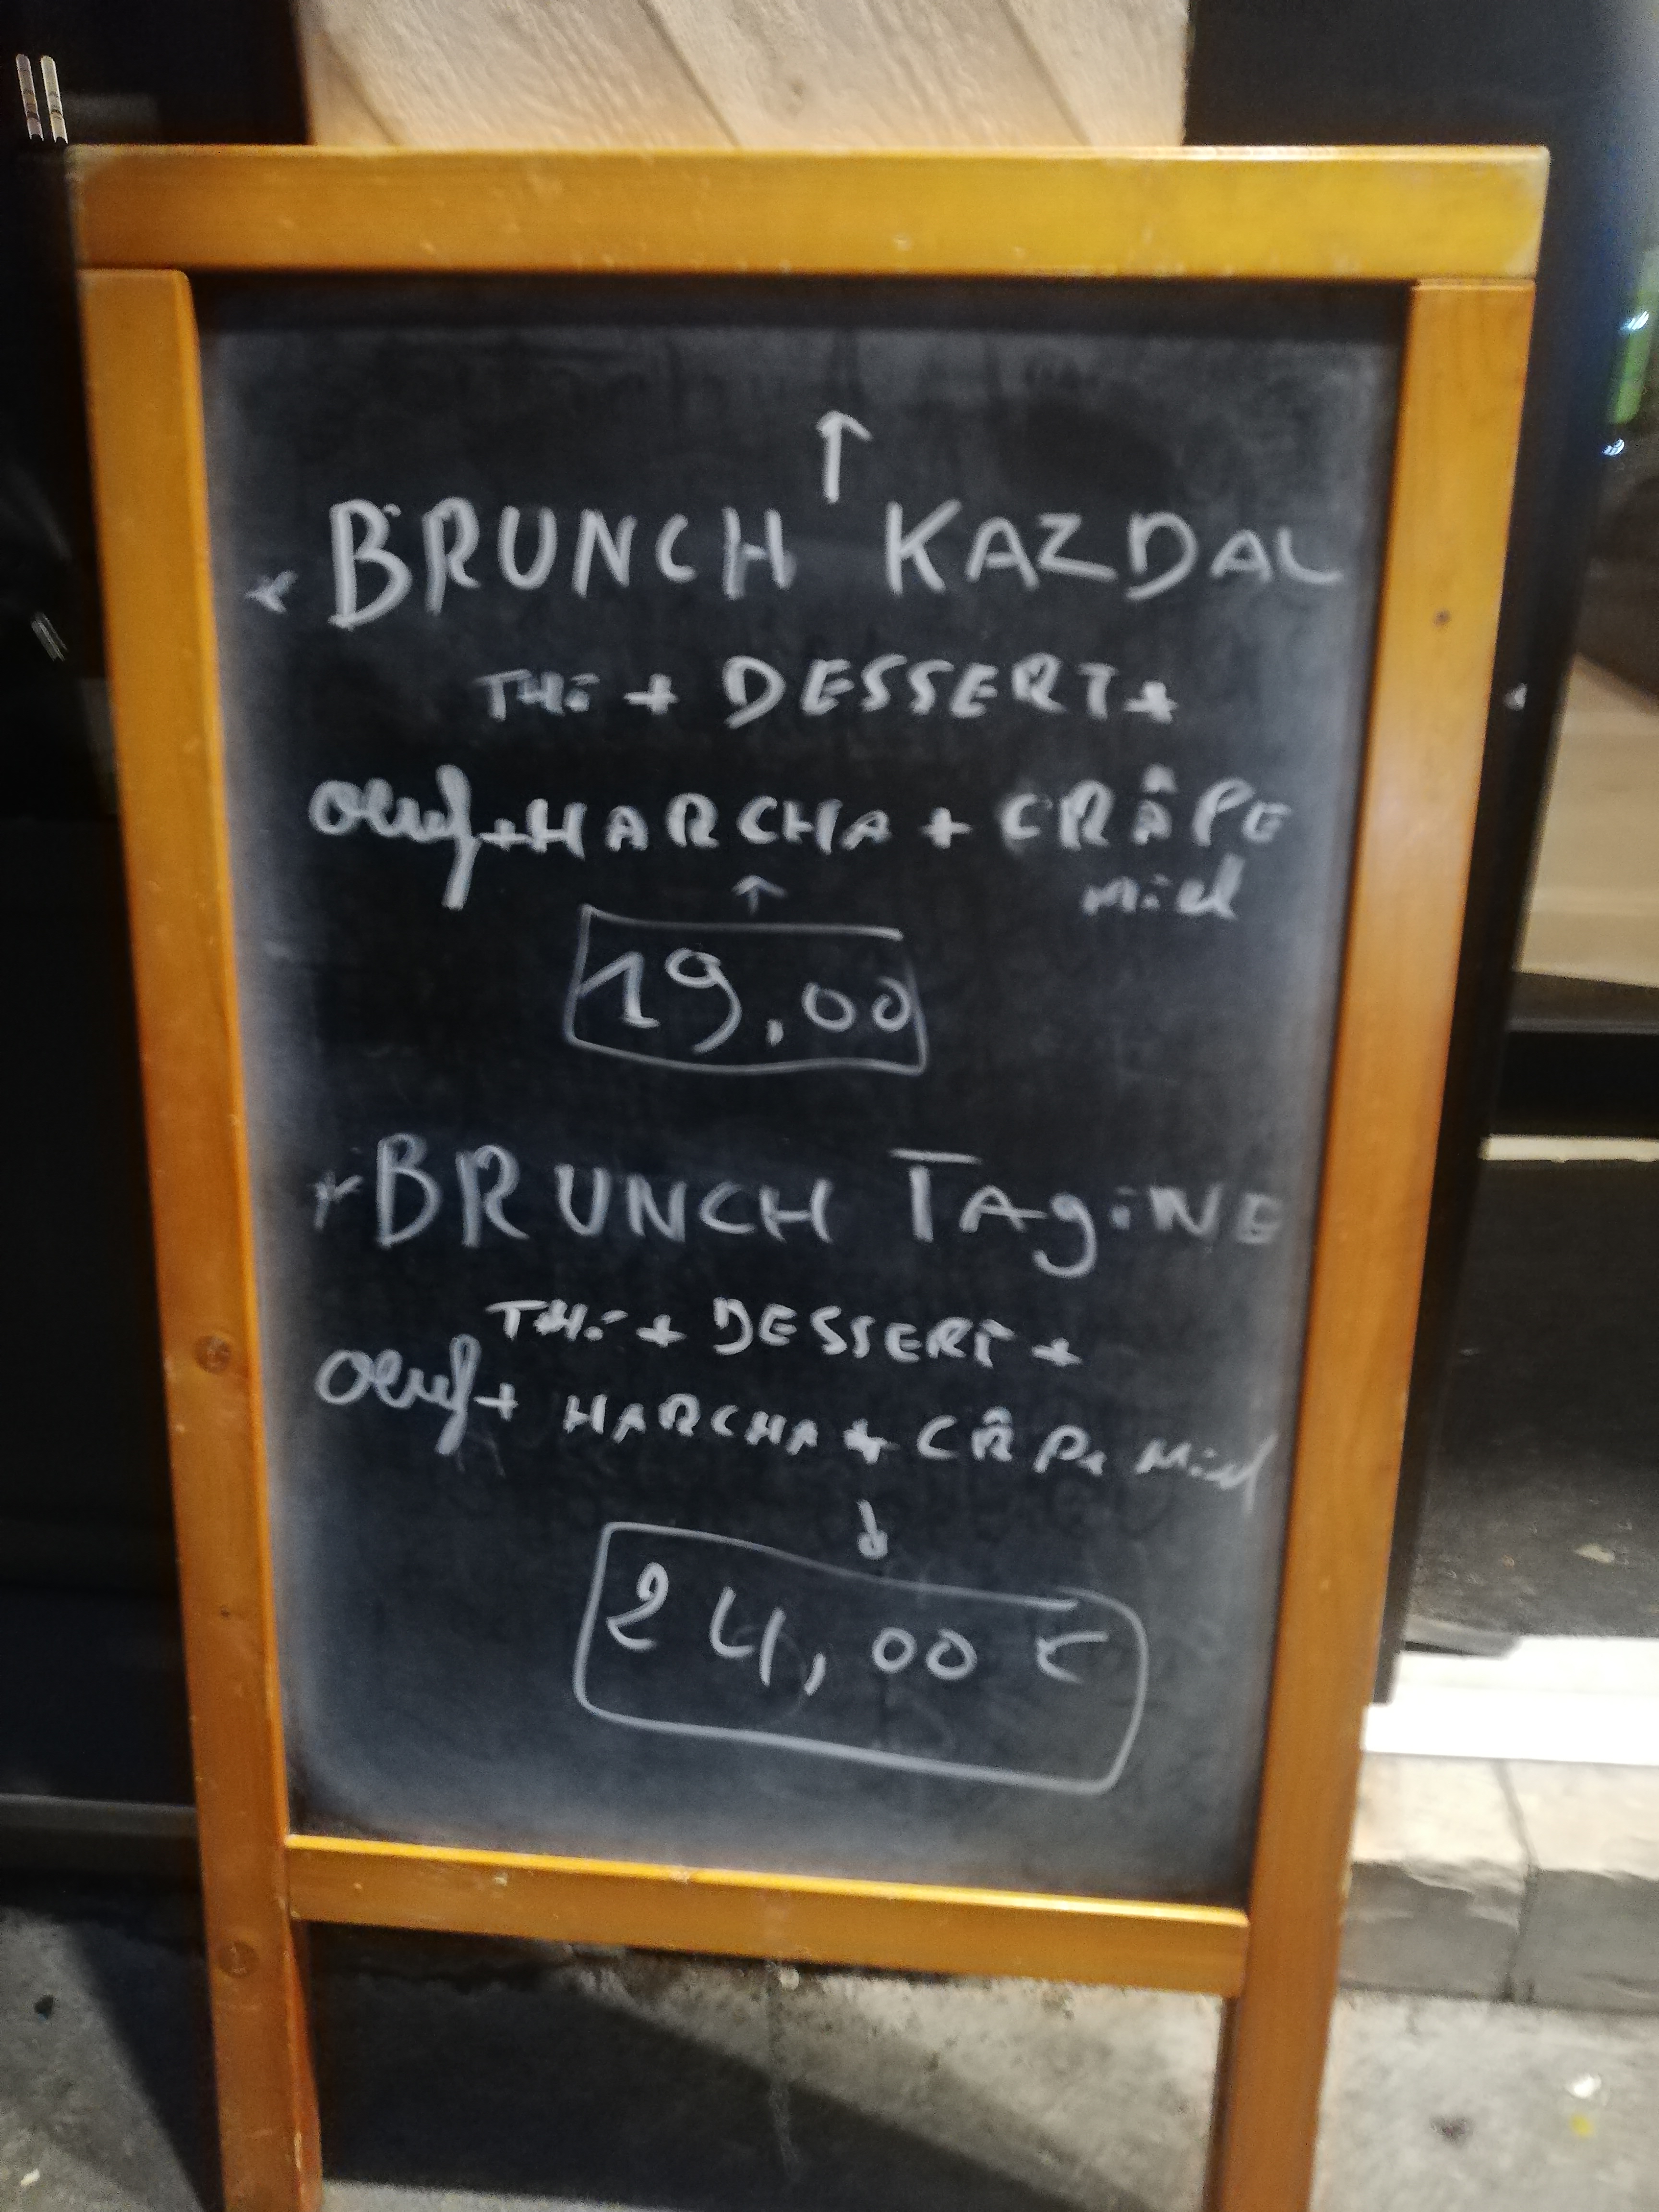 BRUNCH KAZDAL
THÉ + DESSERT +
Oeuf + HARCHA + CRÂPE
Miel
19,00
BRUNCH TAgiNE
THÉ + DESSERT +
Oeuf + HARCHA + CR̂Pe Miel
24,00 €